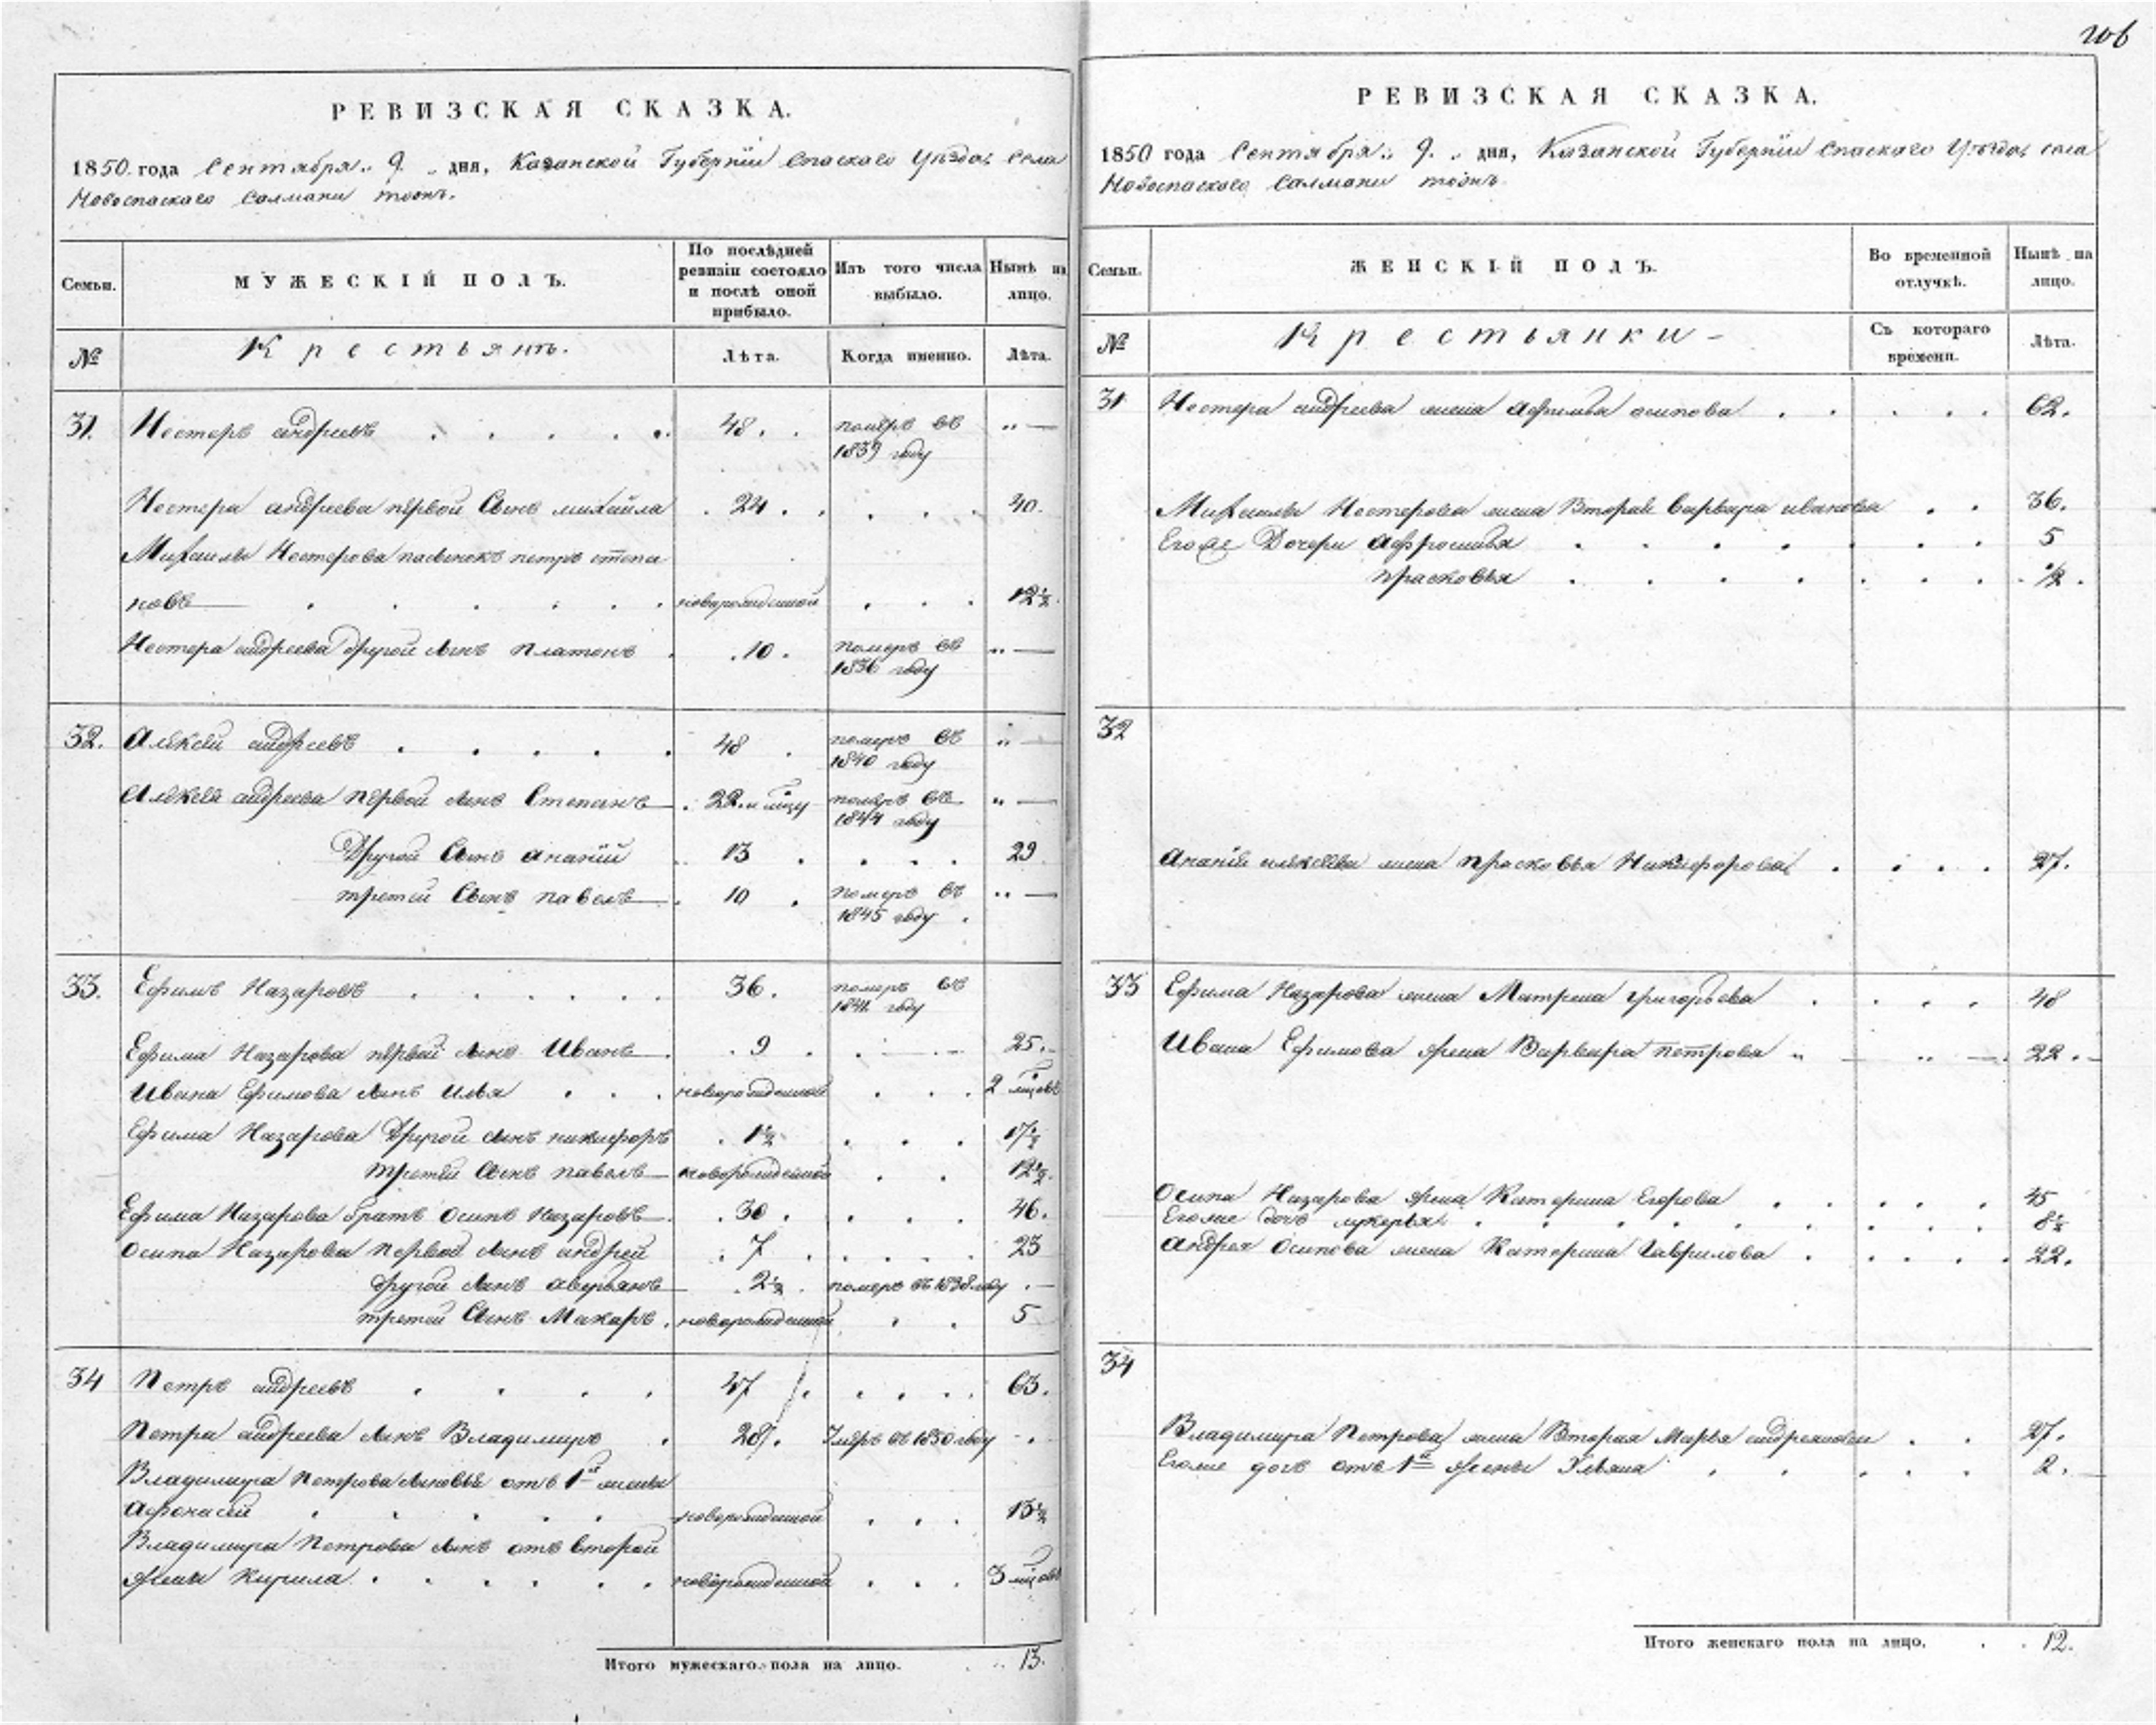 206
РЕВИЗСКАЯ СКАЗКА.
1850 года Сентября 9. дня, Казанской Губерніи Спаскаго Уѣзда, Села
Новоспаскаго Салманы тожъ.
Семьи.
МУЖЕСКІЙ ПОЛЪ.
По послѣдней ревизіи состояло и послѣ оной прибыло.
Изъ того числа выбыло.
Нынѣ на лицо.
№
Крестьянъ.
Лѣта.
Когда именно.
Лѣта.
31. Нестеръ андреевъ 48. померъ въ 1839 году
Нестера андреева первой Сынъ михайла 24. 40.
Михаилы Нестерова пасынокъ петръ степа
новъ новорожденной 12½
Нестера андреева другой сынъ платонъ 10. померъ въ 1836 году
32. Алексей андреевъ 48 померъ въ 1840 году
Алексея андреева первой сынъ Степанъ 22. померъ въ 1844 году
Другой Сынъ ананій 13 29
третей Сынъ павелъ 10 померъ въ 1845 году
33. Ефимъ Назаровъ 36. померъ въ году
Ефима Назарова первой сынъ Иванъ 9 25.
Ивана Ефимова сынъ илья новорожденной 2 мцовъ
Ефима Назарова Другой сынъ никифоръ 1½ 17½
третей Сынъ павелъ новорожденной 12½.
Ефима Назарова братъ осипъ Назаровъ 30. 46.
осипа Назарова первой сынъ андрей 7 23
другой сынъ аверьянъ 2½ померъ въ 1838 году
третей Сынъ Макаръ новорожденной 5
34 Петръ андреевъ 47 63.
Петра андреева сынъ Владимиръ 28. Умеръ въ 1850 году
Владимира Петрова сыновья отъ 1й жены
Афонасей новорожденной 13½
Владимира Петрова сынъ отъ второй
жены Кирила новорожденной 3 мцовъ
Итого мужескаго пола на лицо. 13.
РЕВИЗСКАЯ СКАЗКА.
1850 года Сентября 9. дня, Казанской Губерніи Спаскаго Уѣзда, села
Новоспаскаго Салманы тожъ.
Семьи.
ЖЕНСКІЙ ПОЛЪ.
Во временной отлучкѣ.
Нынѣ на лицо.
№
Крестьянки
Съ котораго времени.
Лѣта.
31 Нестера андреева жена афимья осипова 62.
Михаилы Нестерова жена Вторая варвара иванова 36.
Егоже Дочери Афросинья 5
прасковья ½.
32
Ананія алексеева жена прасковья Никифорова 27.
33 Ефима Назарова жена Матрена григорьева 48
Ивана Ефимова жена Варвара петрова 22.
Осипа Назарова жена Катерина Егорова 45
Егоже дочь лукерья 8½
андрея Осипова жена Катерина Гаврилова 22.
34
Владимира Петрова жена Вторая Марья 27.
Егоже дочь отъ 1й жены Ульяна 2.
Итого женскаго пола на лицо. 12.